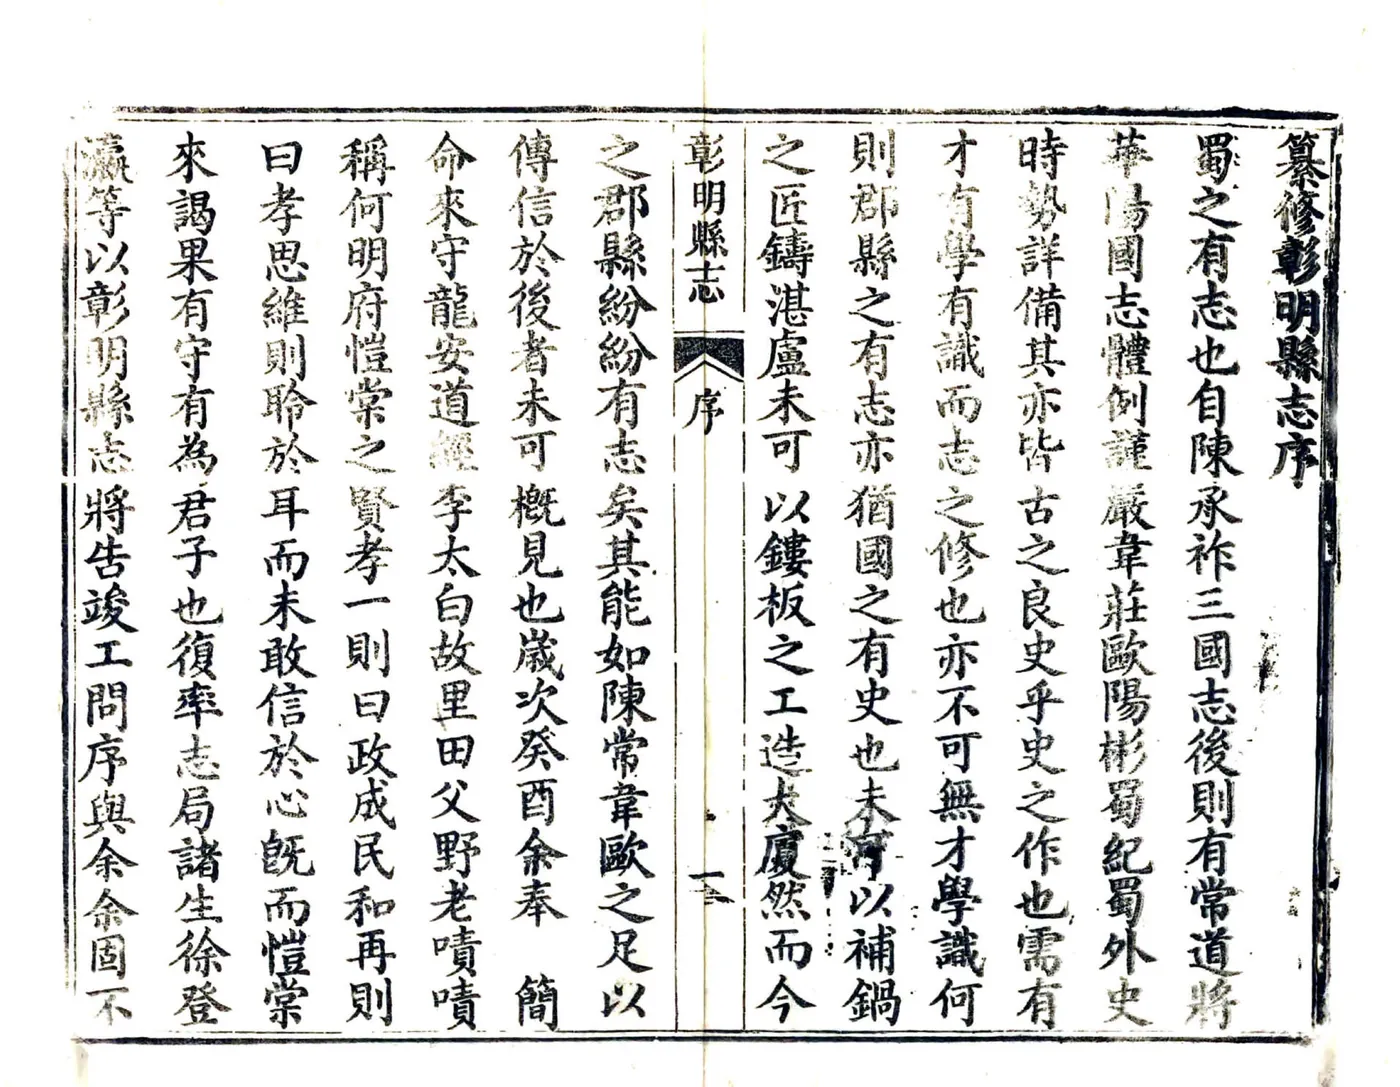 纂修彰明縣志序
蜀之有志也自陳承祚三國志後則有常道將
華陽國志體例謹嚴韋莊歐陽彬蜀紀蜀外史
時勢詳備其亦皆古之良史乎史之作也需有
才有學有識而志之修也亦不可無才學識何
則郡縣之有志亦猶國之有史也未可以補鍋
之匠鑄湛盧未可以鏤板之工造大廈然而今
彰明縣志
序
一
之郡縣紛紛有志矣其能如陳常韋歐之足以
傳信於後者未可概見也歲次癸酉余奉 簡
命來守龍安道經李太白故里田父野老嘖嘖
稱何明府愷棠之賢孝一則曰政成民和再則
曰孝思維則聆於耳而未敢信於心旣而愷棠
來謁果有守有為君子也復率志局諸生徐登
瀛等以彰明縣志將告竣工問序與余余固不